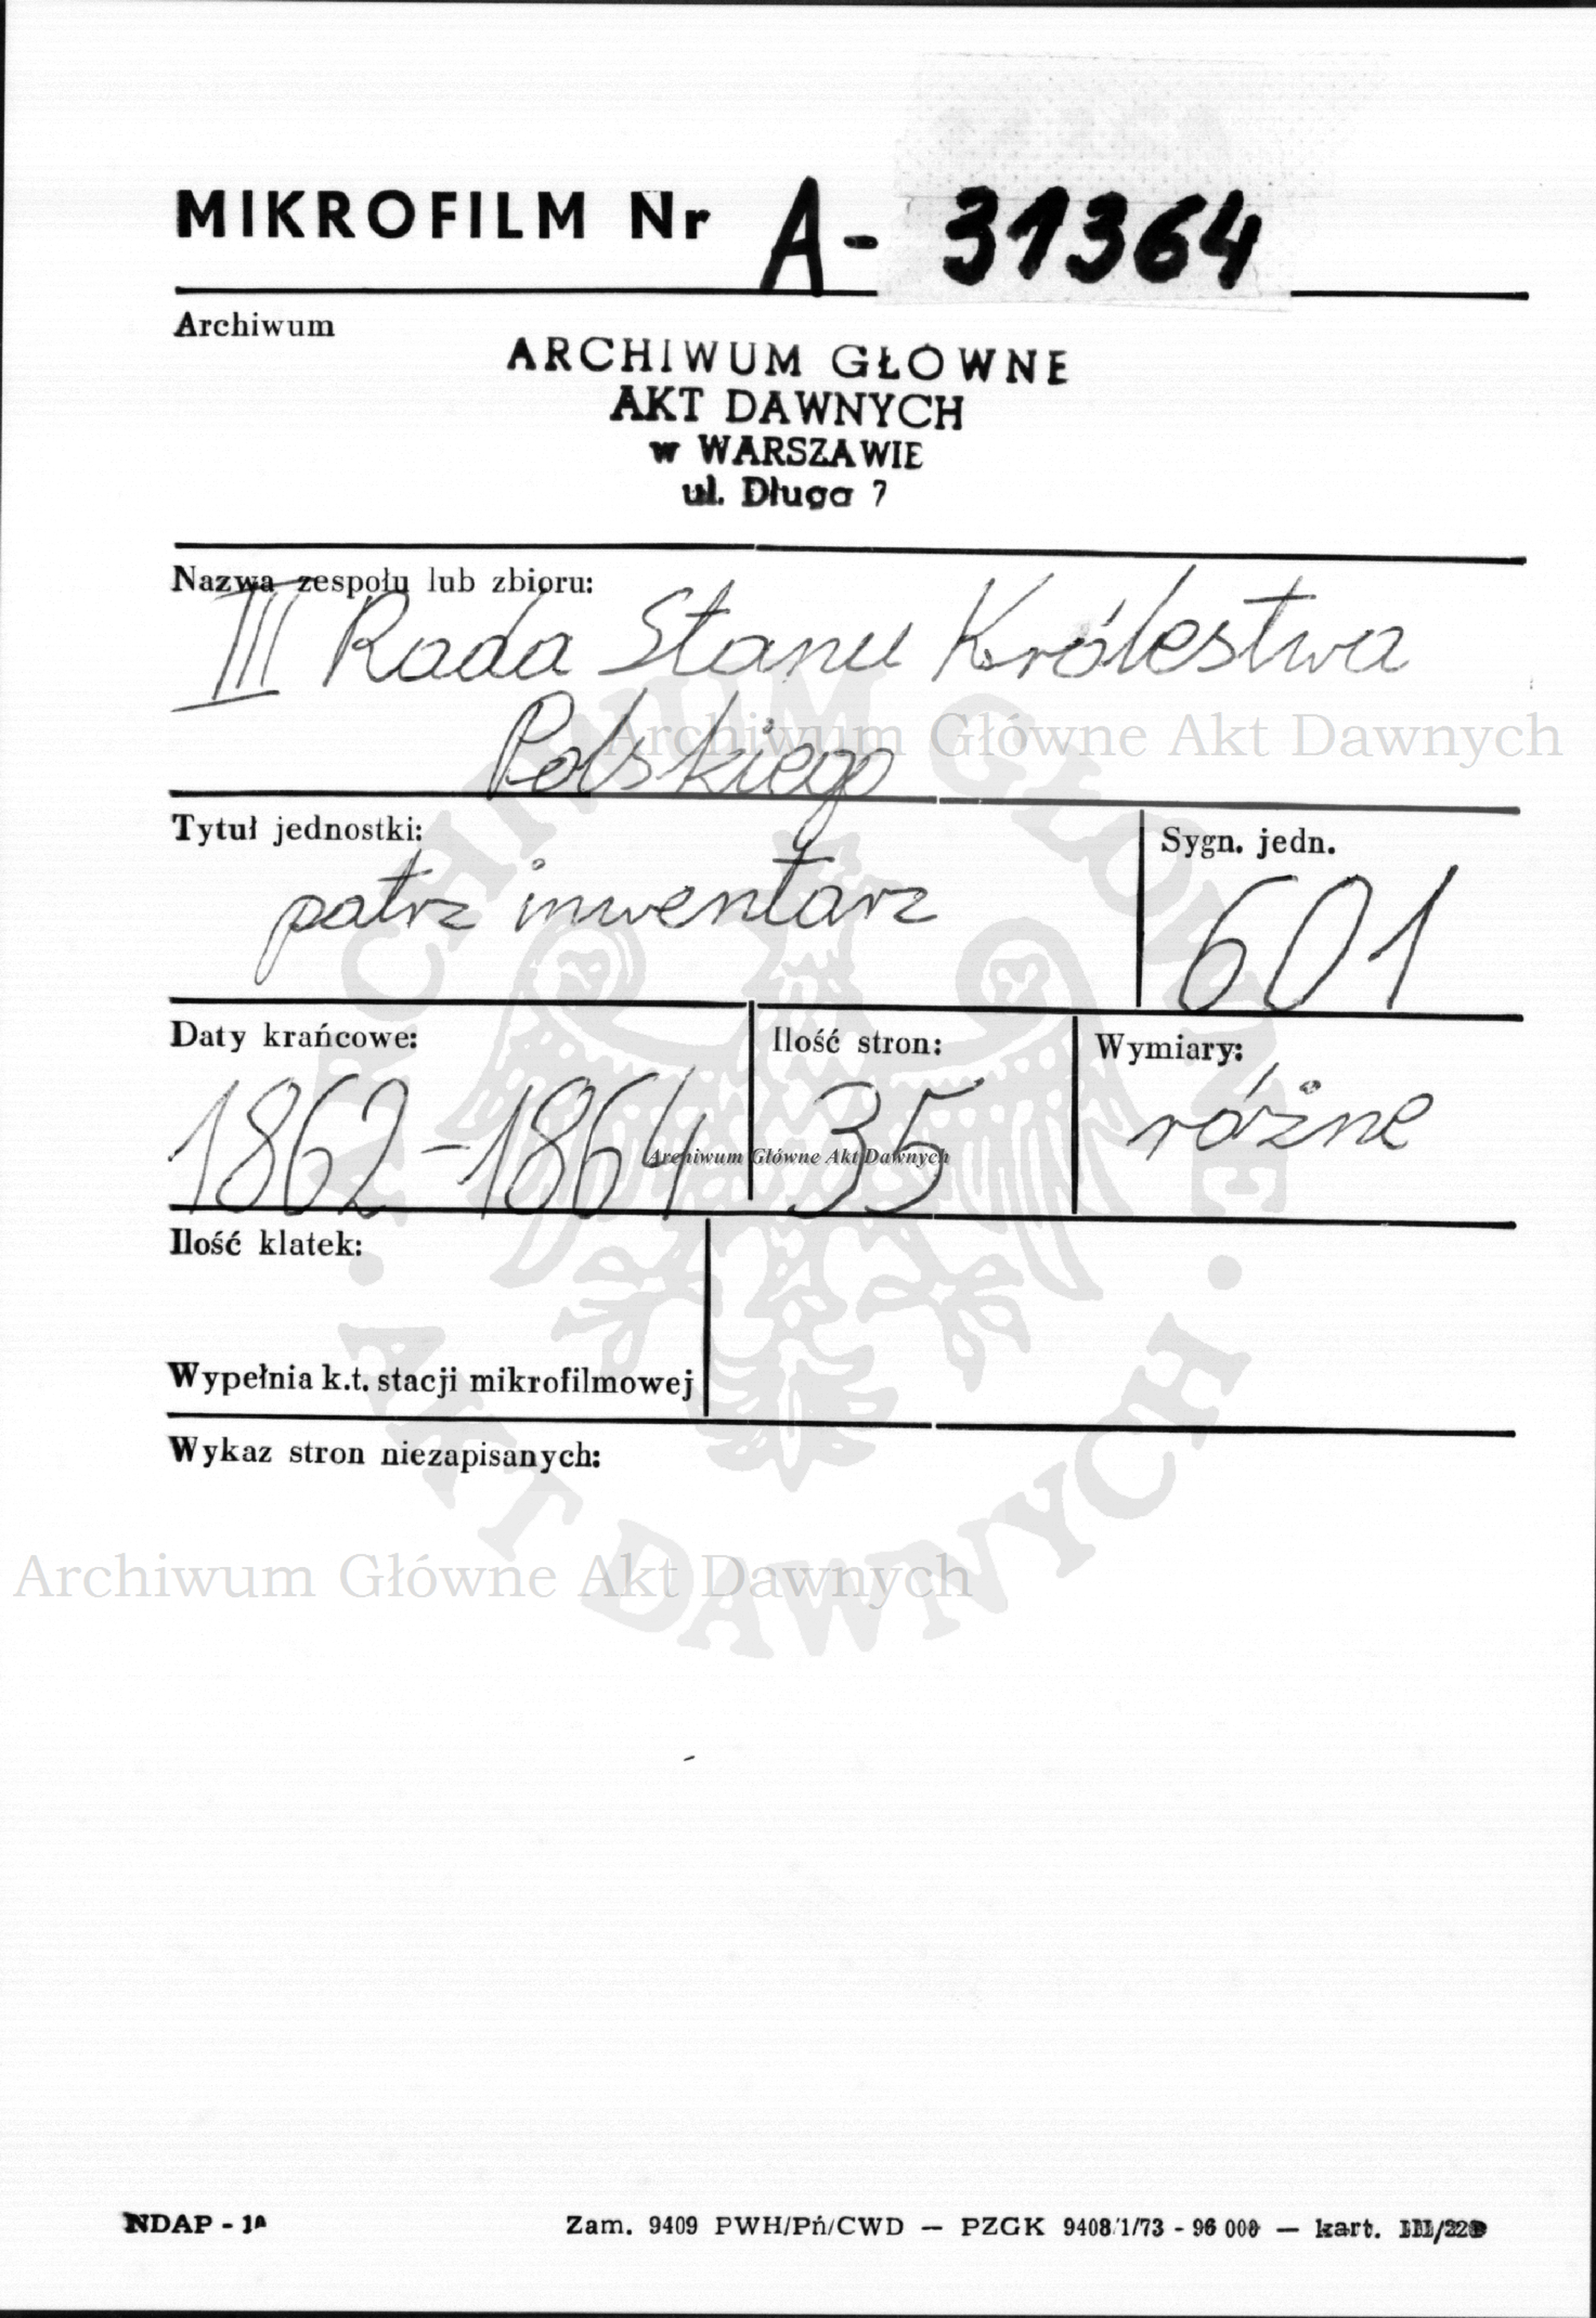 MIKROFILM Nr A- 31364
Archiwum
ARCHIWUM GŁÓWNE
AKT DAWNYCH
w WARSZAWIE
ul. Długa 7
Nazwa zespołu lub zbioru:
III Rada Stanu Królestwa
Polskiego
Archiwum Główne Akt Dawnych
Tytuł jednostki:
patrz inwentarz
Sygn. jedn.
601
Daty krańcowe:
1862-1864
Ilość stron:
35
Wymiary:
różne
Archiwum Główne Akt Dawnych
Ilość klatek:
Wypełnia k.t. stacji mikrofilmowej
Wykaz stron niezapisanych:
Archiwum Główne Akt Dawnych
ARCHIWUM GŁÓWNE
• AKT DAWNYCH •
NDAP - 1A
Zam. 9409 PWH/Pń/CWD — PZGK 9408/1/73 - 96 000 — kart.